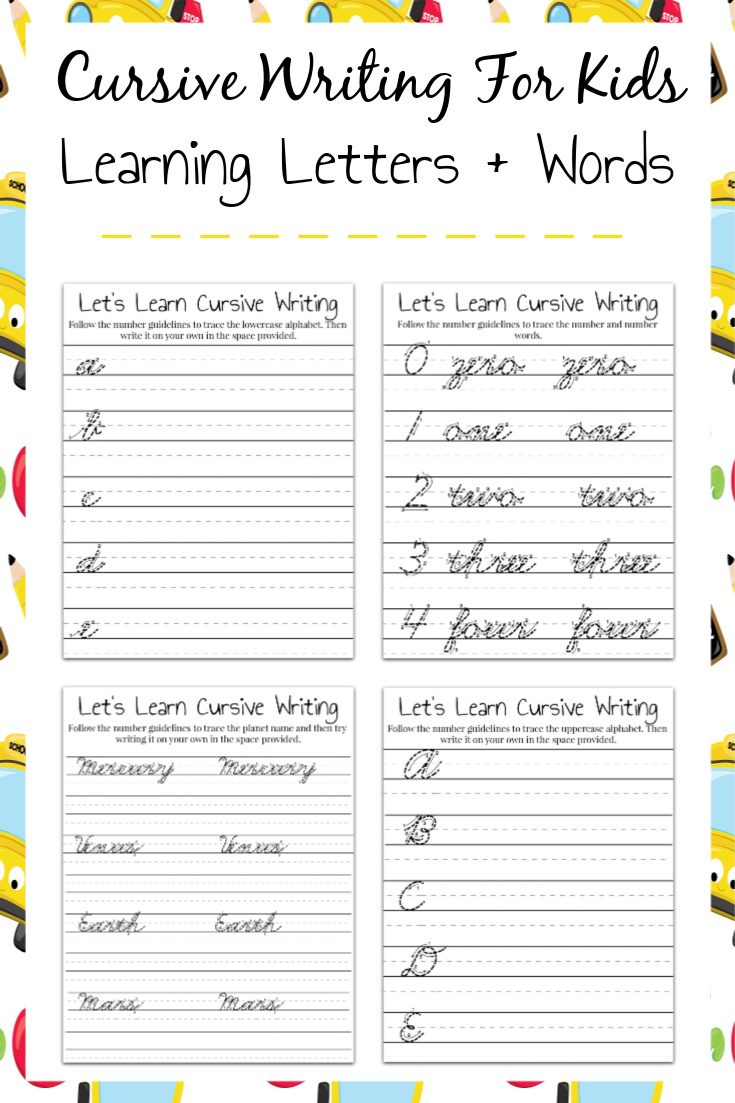 STOP
STOP
STOP
Cursive Writing For Kids
Learning Letters + Words
SCHOOL
Let's Learn Cursive Writing
Follow the number guidelines to trace the lowercase alphabet. Then
write it on your own in the space provided.
a
b
c
d
e
Let's Learn Cursive Writing
Follow the number guidelines to trace the number and number
words.
0 zero zero
1 one one
2 two two
3 three three
4 four four
Let's Learn Cursive Writing
Follow the number guidelines to trace the planet name and then try
writing it on your own in the space provided.
Mercury Mercury
Venus Venus
Earth Earth
Mars Mars
Let's Learn Cursive Writing
Follow the number guidelines to trace the uppercase alphabet. Then
write it on your own in the space provided.
A
B
C
D
E